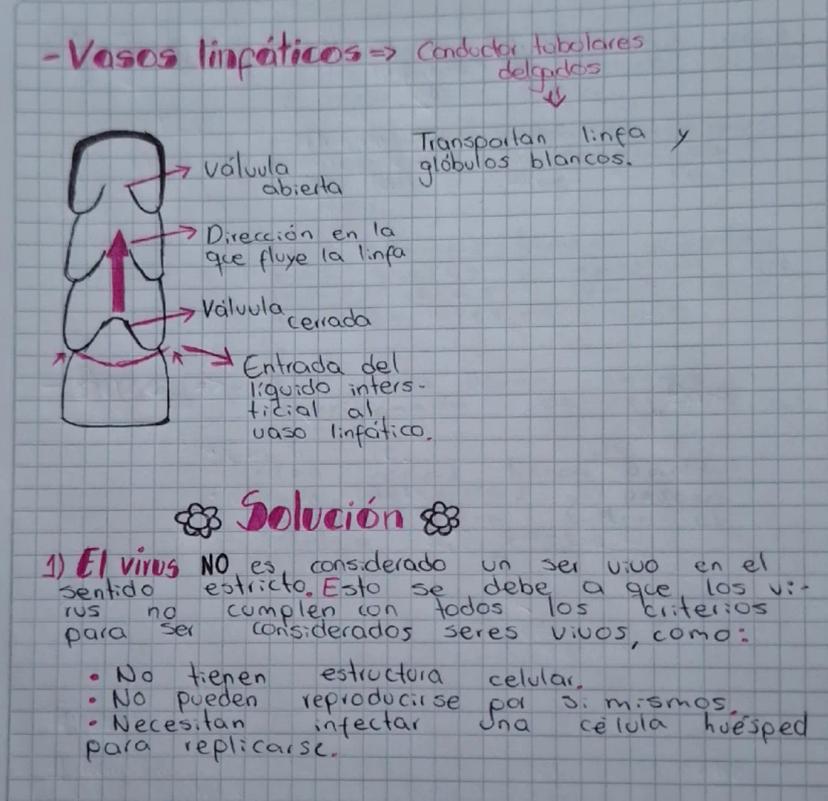 - Vasos linfáticos => Conductor tubolares
delgados
Transportan linfa y
glóbulos blancos.
Válvula
abierta
Dirección en la
que fluye la linfa
Válvula
cerrada
Entrada del
líquido inters-
ticial al
vaso linfático.
Solución
1) El virus NO es considerado un ser vivo en el
sentido estricto. Esto se debe a que los vi-
rus no cumplen con todos los criterios
para ser considerados seres vivos, como:
• No tienen estructura celular.
• No pueden reproducirse por si mismos.
• Necesitan infectar una célula huésped
para replicarse.